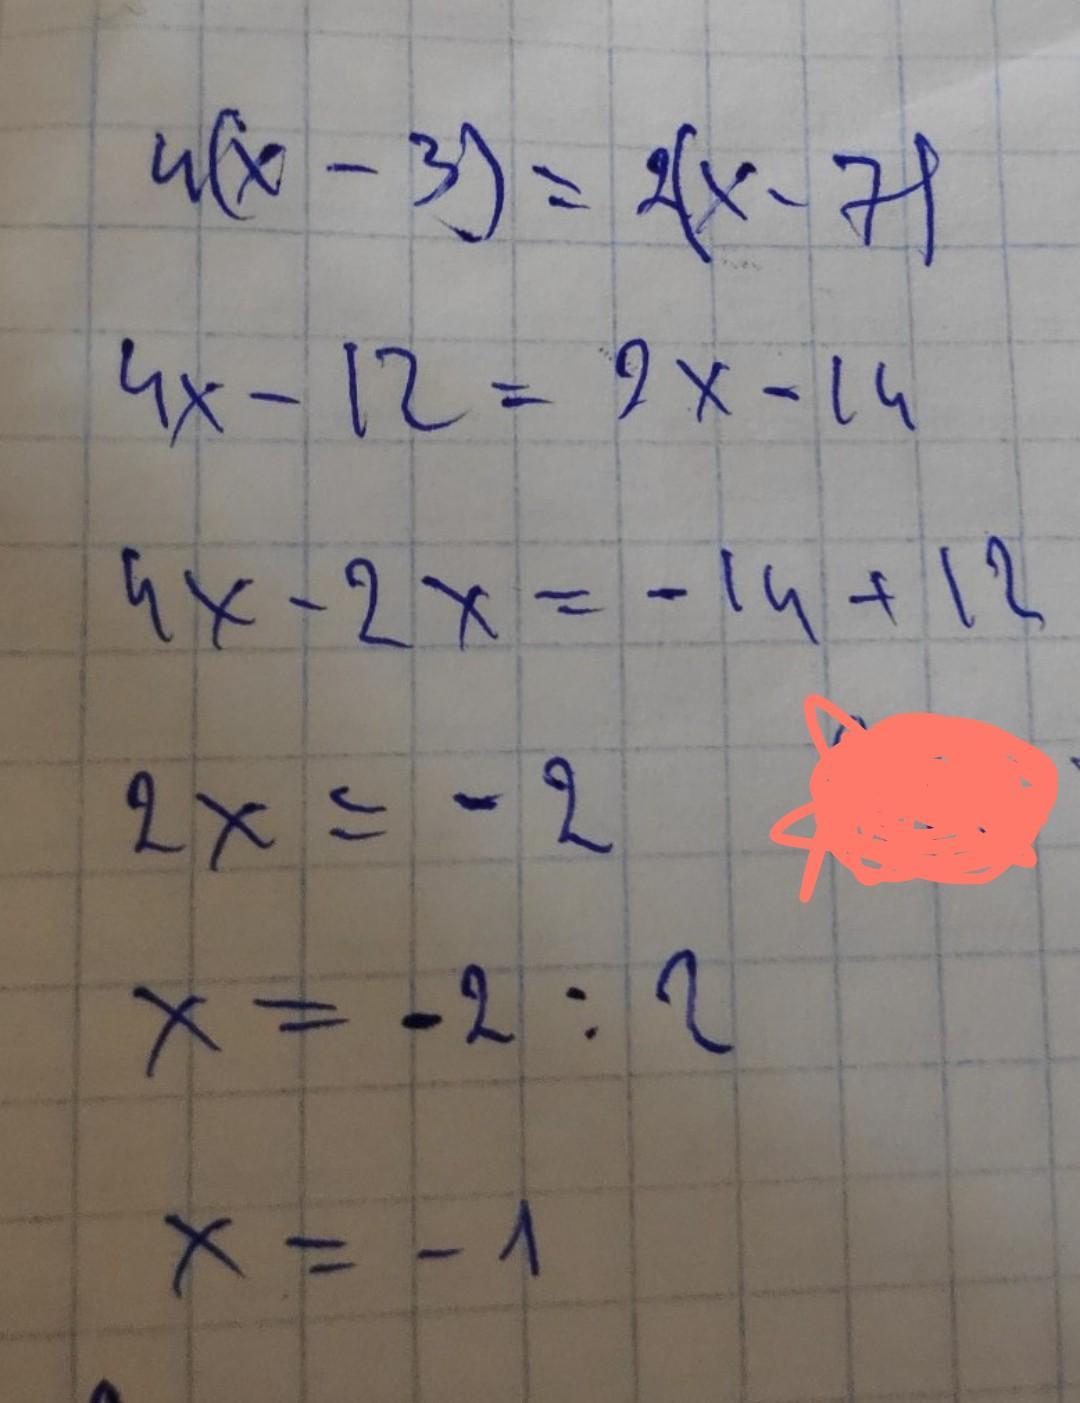 4(x - 3) = 2(x - 7)
4x - 12 = 2x - 14
4x - 2x = -14 + 12
2x = -2
x = -2 : 2
x = -1